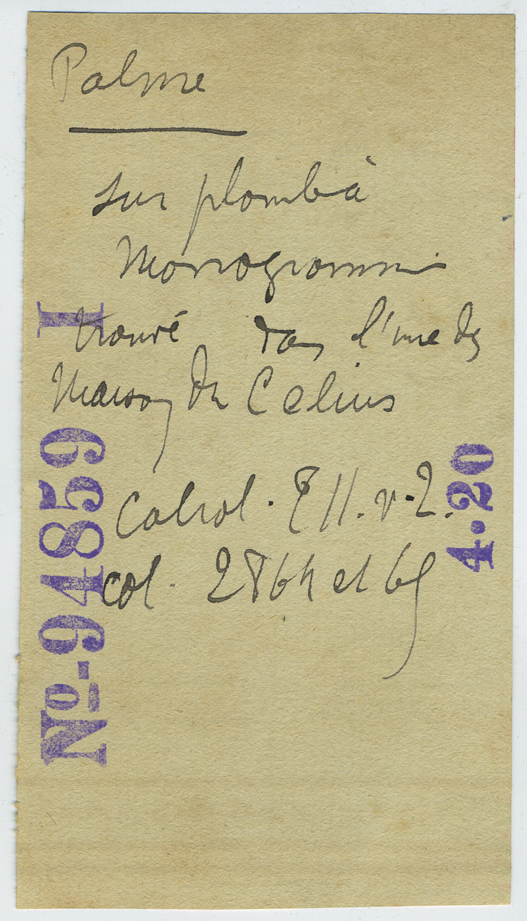 Palme
sur plomb à
Monogramme
trouvé dans l'une des
Maisons du Celius
Cabrol. T II. v. 2.
col. 2864 et 65
No-94859 I
4.20